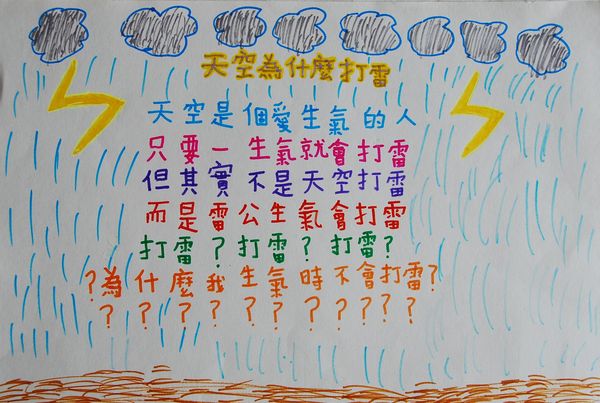 天空為什麼打雷
天空是個愛生氣的人
只要一生氣就會打雷
但其實不是天空打雷
而是雷公生氣會打雷
打雷？打雷？打雷？
？為什麼我生氣時不會打雷？
？？？？？？？？？